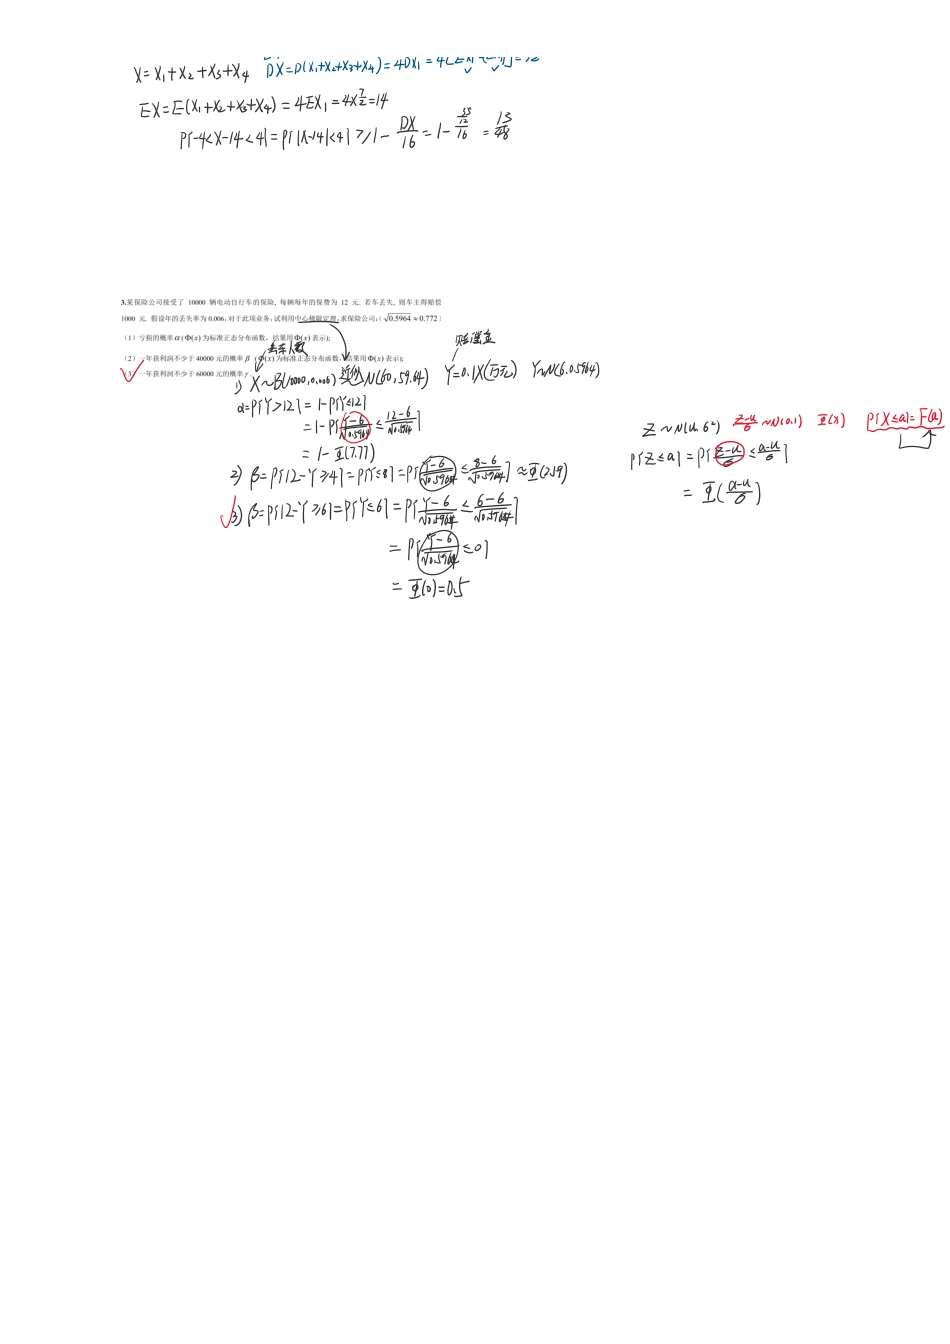 X=X₁+X₂+X₃+X₄ DX=D(X₁+X₂+X₃+X₄)=4DX₁=
EX=E(X₁+X₂+X₃+X₄)=4EX₁=4×7/2=14
P{-4<X-14<4}=P{|X-14|<4}≥1-DX/16=1-(35/12)/16=13/48
3.某保险公司接受了 10000 辆电动自行车的保险, 每辆每年的保费为 12 元. 若车丢失, 则车主得赔偿
1000 元. 假设年的丢失率为 0.006, 对于此项业务, 试利用中心极限定理, 求保险公司: (√0.5964≈0.772)
(1) 亏损的概率 α (Φ(x) 为标准正态分布函数, 结果用Φ(x) 表示);
丢车人数 赔偿金
(2) 一年获利润不少于 40000 元的概率 β (Φ(x) 为标准正态分布函数, 结果用Φ(x) 表示);
(3) 一年获利润不少于 60000 元的概率 γ.
1) X~B(10000,0.006) 近似 N(60,59.64) Y=0.1X(万元) Y~N(6,0.5964)
α=P{Y>12}=1-P{Y≤12}
=1-P{(Y-6)/√0.5964≤(12-6)/√0.5964}
=1-Φ(7.77)
2) β=P{12-Y≥4}=P{Y≤8}=P{(Y-6)/√0.5964≤(8-6)/√0.5964}≈Φ(2.59)
3) β=P{12-Y≥6}=P{Y≤6}=P{(Y-6)/√0.5964≤(6-6)/√0.5964}
=P{(Y-6)/√0.5964≤0}
=Φ(0)=0.5
Z~N(u,σ²) (Z-u)/σ~N(0,1) Φ(x) P{X≤a}=F(a)
P{Z≤a}=P{(Z-u)/σ≤(a-u)/σ}
=Φ((a-u)/σ)